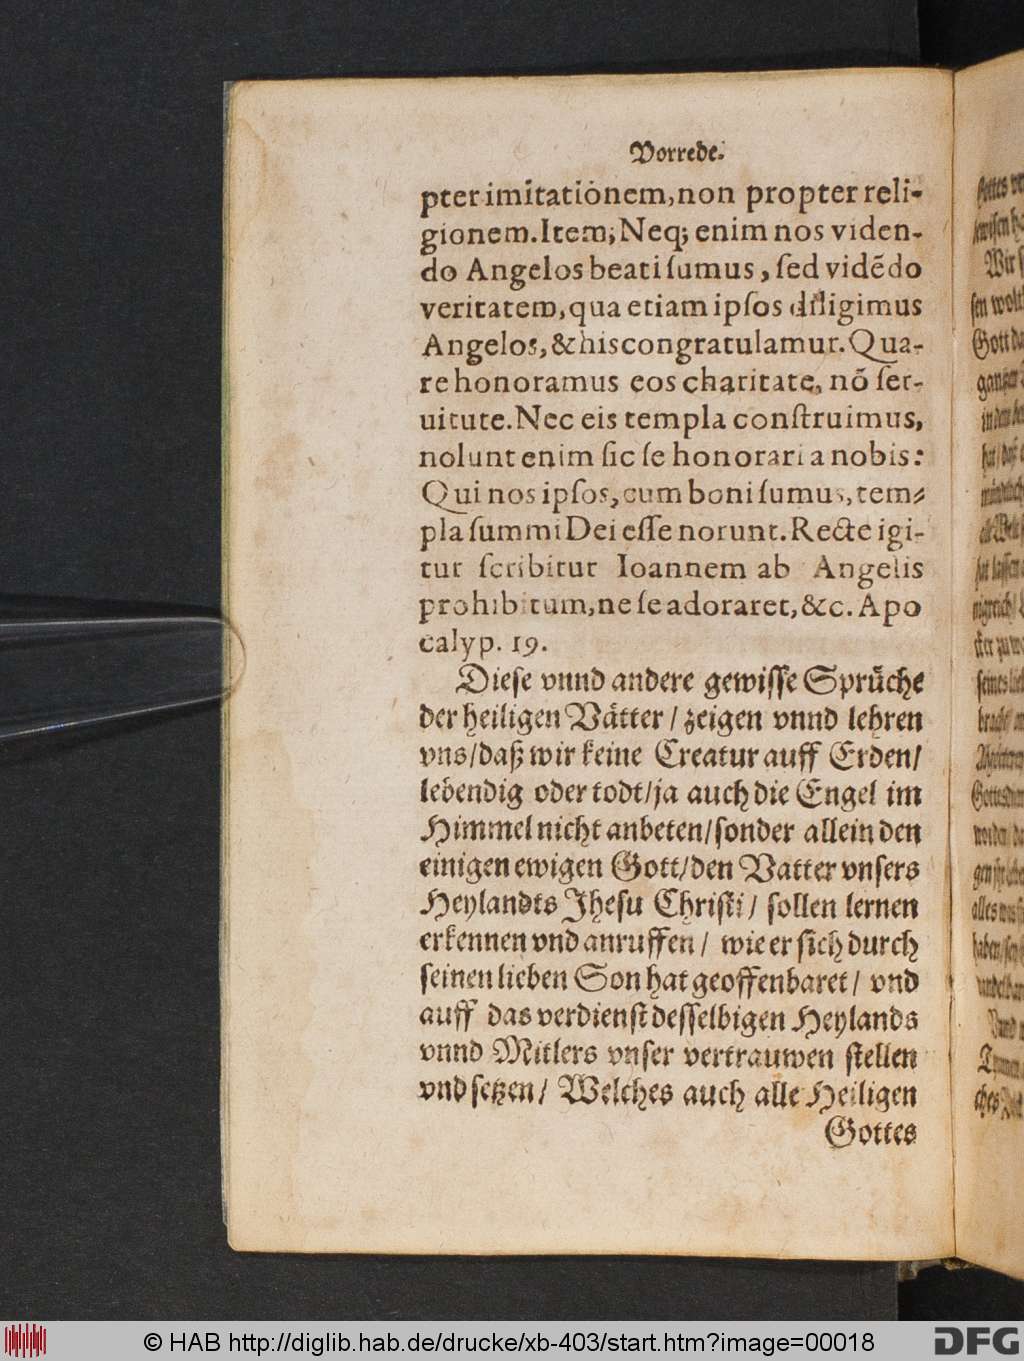 Vorrede.
pter imitationem, non propter reli-
gionem. Item, Neq; enim nos viden-
do Angelos beati sumus, sed vidẽdo
veritatem, qua etiam ipsos diligimus
Angelos, & his congratulamur. Qua-
re honoramus eos charitate, nõ ser-
uitute. Nec eis templa construimus,
nolunt enim sic se honorari a nobis:
Qui nos ipsos, cum boni sumus, tem-
pla summi Dei esse norunt. Recte igi-
tur scribitur Ioannem ab Angelis
prohibitum, ne se adoraret, &c. Apo
calyp. 19.
Diese vnnd andere gewisse Sprüche
der heiligen Vätter / zeigen vnnd lehren
vns / daß wir keine Creatur auff Erden /
lebendig oder todt / ja auch die Engel im
Himmel nicht anbeten / sonder allein den
einigen ewigen Gott / den Vatter vnsers
Heylandts Jhesu Christi / sollen lernen
erkennen vnd anruffen / wie er sich durch
seinen lieben Son hat geoffenbaret / vnd
auff das verdienst desselbigen Heylands
vnnd Mitlers vnser vertrauwen stellen
vnd setzen / Welches auch alle Heiligen
Gottes
© HAB http://diglib.hab.de/drucke/xb-403/start.htm?image=00018
DFG